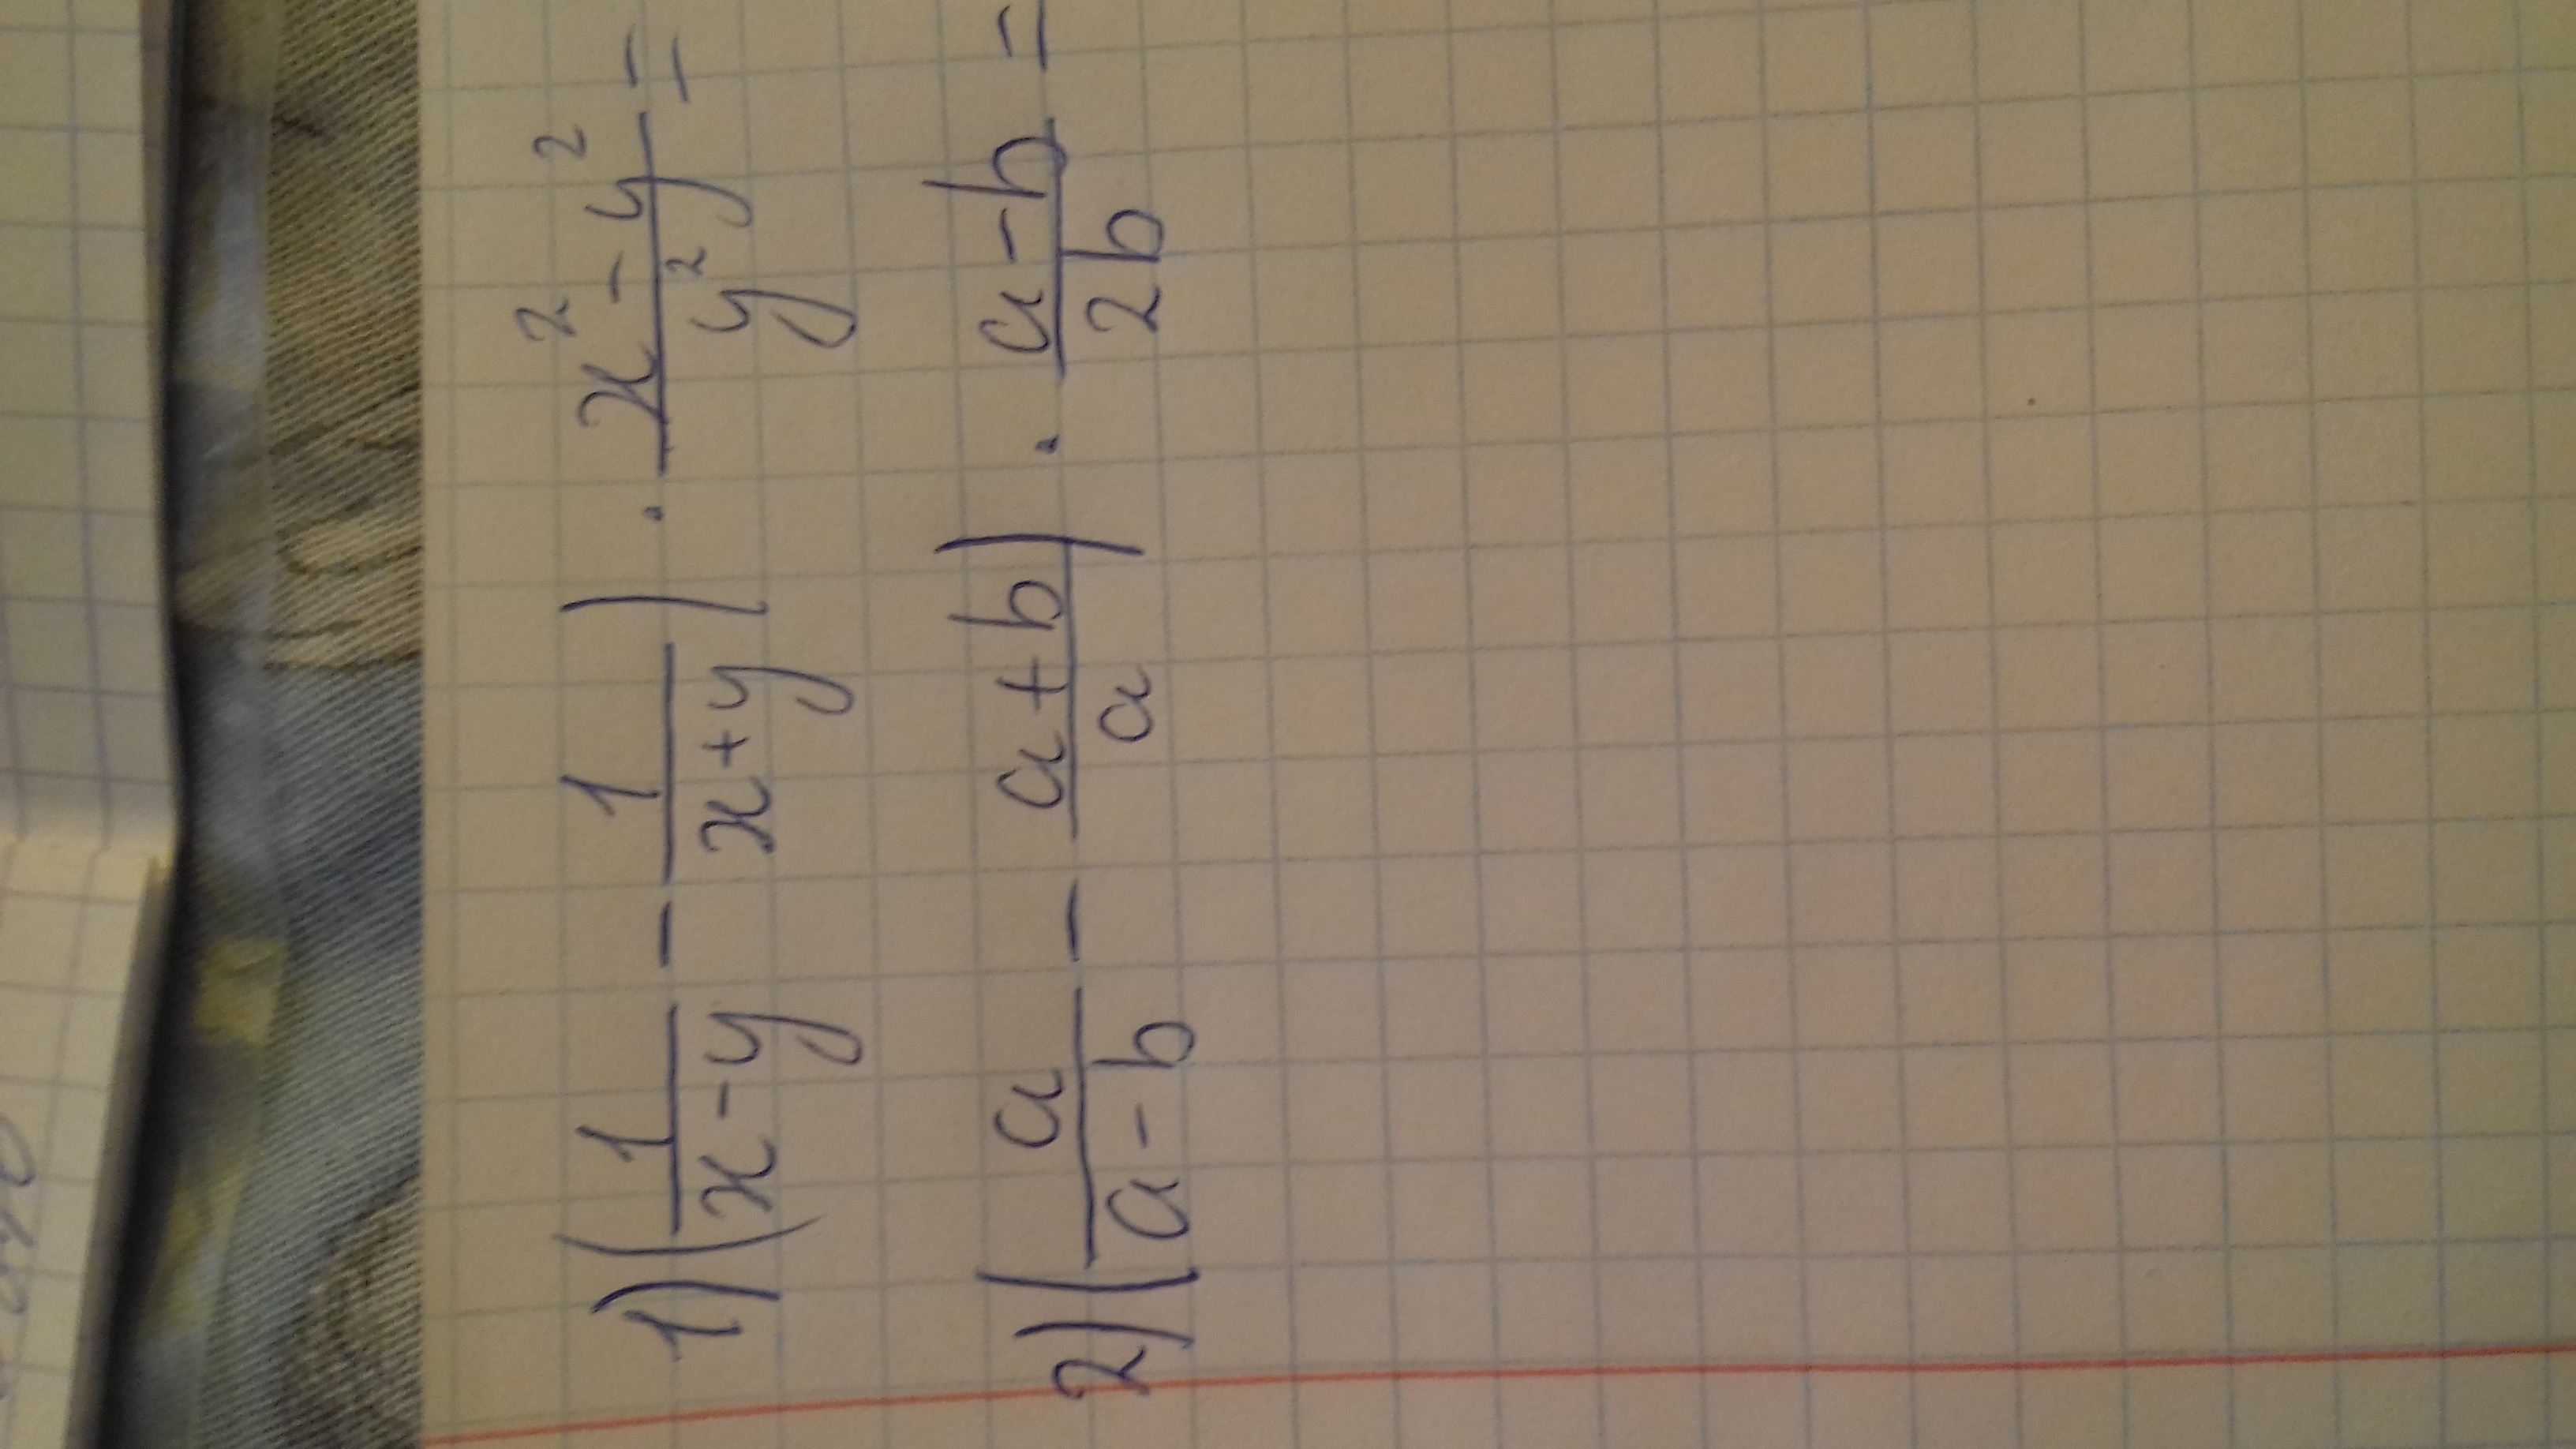 1) (1/(x-y) - 1/(x+y)) · (x²-y²)/y² =
2) (a/(a-b) - (a+b)/a) · (a-b)/2b =